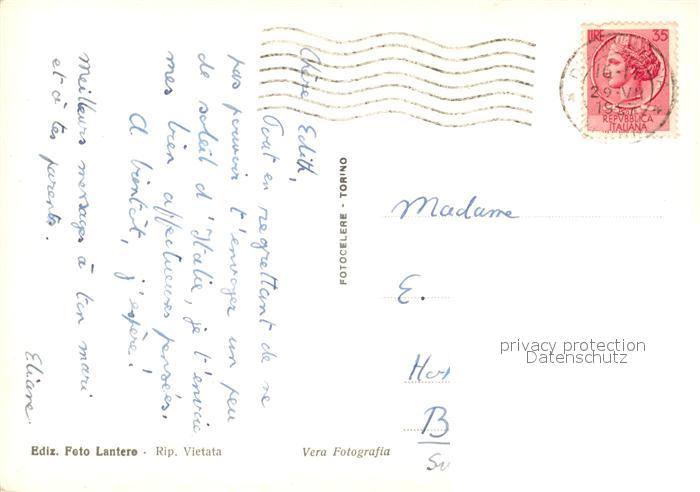 Chère Edith,
Tout en regrettant de ne
pas pouvoir t'envoyer un peu
de soleil d'Italie, je t'envoie
mes bien affectueuses pensées.
A bientôt, j'espère!
Meilleurs messages à ton mari
et à tes parents.
Eliane.
Ediz. Foto Lantero - Rip. Vietata
Vera Fotografia
FOTOCELERE - TORINO
LIRE 35
29 VII
REPVBBLICA
ITALIANA
Madame
E.
B
privacy protection
Datenschutz